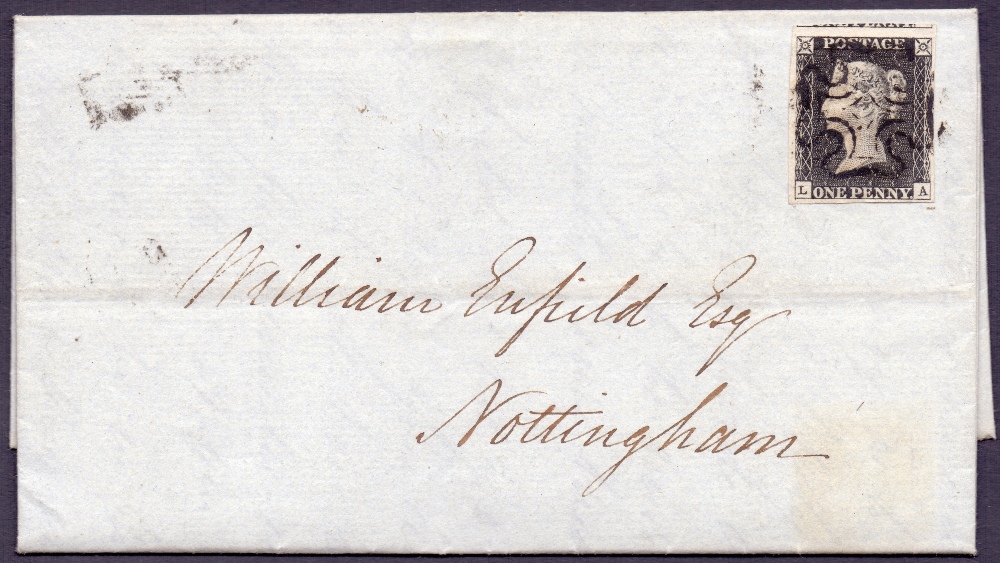 ONE PENNY
POSTAGE
L ONE PENNY. A
William Enfield Esq
Nottingham